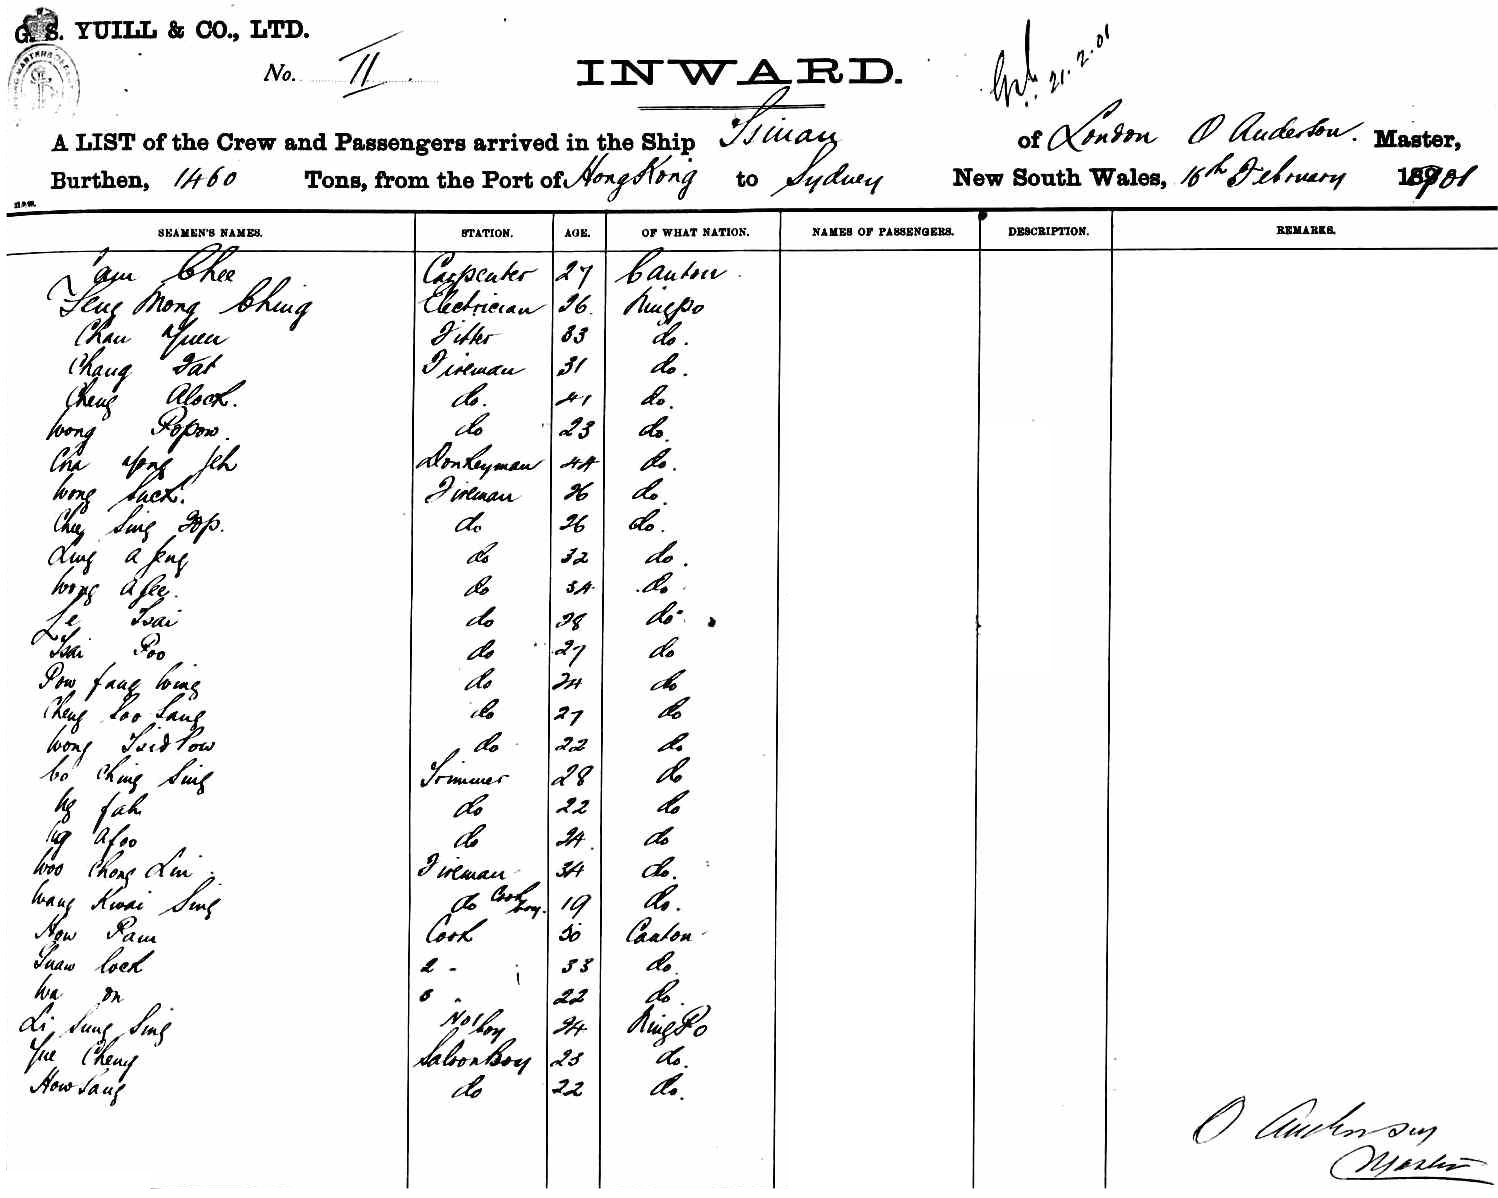 G. S. YUILL & CO., LTD.
No. II
INWARD.
21.2.01
A LIST of the Crew and Passengers arrived in the Ship Tsinan of London O Anderson. Master,
Burthen, 1460 Tons, from the Port of Hong Kong to Sydney New South Wales, 16th February 1901
SEAMEN'S NAMES. STATION. AGE. OF WHAT NATION. NAMES OF PASSENGERS. DESCRIPTION. REMARKS.
Tam Chee Carpenter 27 Canton
Seng Mong Ching Electrician 26 Ningpo
Chan Yuen Fitter 33 do.
Chang Fat Fireman 31 do.
Cheng Alock. do. 41 do.
Wong Popow. do 23 do.
Cha Yong Jeh Donkeyman 44 do.
Wong Suck. Fireman 26 do.
Chey Sing Fop. do 26 do.
Ling a Seng do 32 do.
Wong a See. do 34 do.
Le Tsai do 28 do
Tsai Poo do 27 do
Pow fang Wing do 24 do
Cheng Soo Sang do 27 do
Wong Pow do 22 do
Wo Ching Sing Trimmer 28 do
Ng fah do 22 do
Ng Afoo do 24 do
Woo Chong Lin Fireman 34 do.
Wang Kwai Sing do Cook boy. 19 do.
How Pam Cook 30 Canton
lock 2 " 33 do.
Wa on 3 " 22 do.
Li Sung Sing No 1 boy 24 Ning Po
Yue Cheng Saloon Boy 23 do.
How Sang do 22 do.
O Anderson
Master